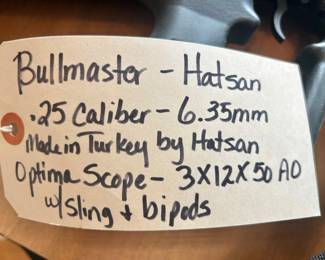 Bullmaster - Hatsan
.25 Caliber - 6.35mm
Made in Turkey by Hatsan
Optima Scope - 3X12X50 AO
w/Sling + bipods